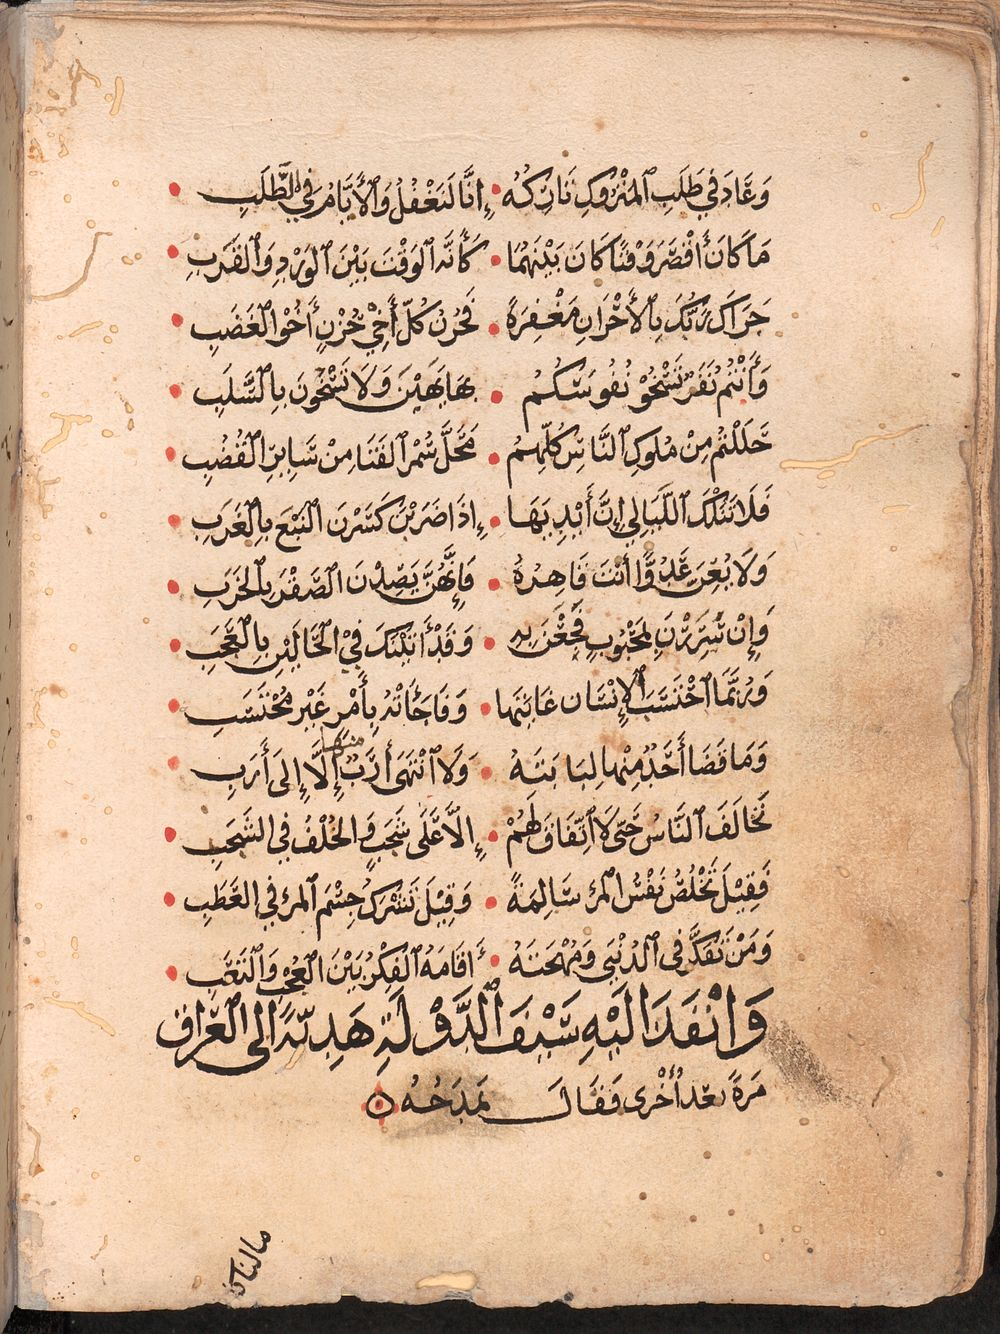 وَعَادَ فِي طَلَبِ المَتْرُوكِ تَارِكُهُ • إِنَّا لَنَغْفُلُ وَالأَيَّامُ فِي الطَّلَبِ •
مَا كَانَ أَقْصَرَ وَقْتًا كَانَ بَيْنَهُمَا • كَأَنَّهُ الوَقْتُ بَيْنَ الوِرْدِ وَالقَرَبِ •
جَزَاكَ رَبُّكَ بِالأَحْزَانِ مَغْفِرَةً • فَحُزْنُ كُلِّ أَخِيْ حُزْنٍ أَخُو الغَضَبِ •
وَأَنْتُمُ نَفَرٌ تَسْخُو نُفُوسُكُمُ • بِمَا يَهَبْنَ وَلَا تَسْخُونَ بِالسَّلَبِ •
حَلَلْتُمُ مِنْ مُلُوكِ النَّاسِ كُلِّهِمُ • مَحَلَّ سُمْرِ القَنَا مِنْ سَايِرِ القُضُبِ •
فَلَا تَنَلْكَ اللَّيَالِي إِنَّ أَيْدِيَهَا • إِذَا ضَرَبْنَ كَسَرْنَ النَّبْعَ بِالغَرَبِ •
وَلَا يُعِنَّ عَدُوًّا أَنْتَ قَاهِرُهُ • فَإِنَّهُنَّ يَصِدْنَ الصَّقْرَ بِالخَرَبِ •
وَإِنْ سَرَرْنَ بِمَحْبُوبٍ فَجَعْنَ بِهِ • وَقَدْ أَتَيْنَكَ فِيْ الحَالَيْنِ بِالعَجَبِ •
وَرُبَّمَا احْتَسَبَ الإِنْسَان غَايَتَهَا • وَفَاجَأَتْهُ بِأَمْرٍ غَيْرِ مُحْتَسَبِ •
وَمَا قَضَا أَحَدٌ مِنْهَا لبَانَتَهُ • وَلَا انْتَهَى أَرَبٌ منها إِلَّا إِلى أَرَبِ •
تَخَالَفَ النَّاسُ حَتَّى لَا اتِّفَاقَ لَهُمْ • إِلَّا عَلَى شَجَبٍ وَالخُلْفُ فِي الشَّجَبِ •
فَقِيْلَ تَخْلُصُ نَفْسُ المَرْءِ سَالِمَةً • وَقِيْلَ تَشْرَكُ جِسْمَ المَرْءِ فِي العَطَبِ •
وَمَنْ تَفَكَّرَ فِي الدُنْيَى وَمُهْجَتَهُ • أَقَامَهُ الفِكْرُ بَيْنَ العُجْزِ وَالتَعَبِ •
وَانْفَذَ الَيْهِ سَيْفُ الدَّوْلَةِ هَدِيَّةً الى العِرَاقِ
مَرَةً بَعْدَ أُخْرى فَقَالَ يَمْدَحُهُ
مالناكلنا